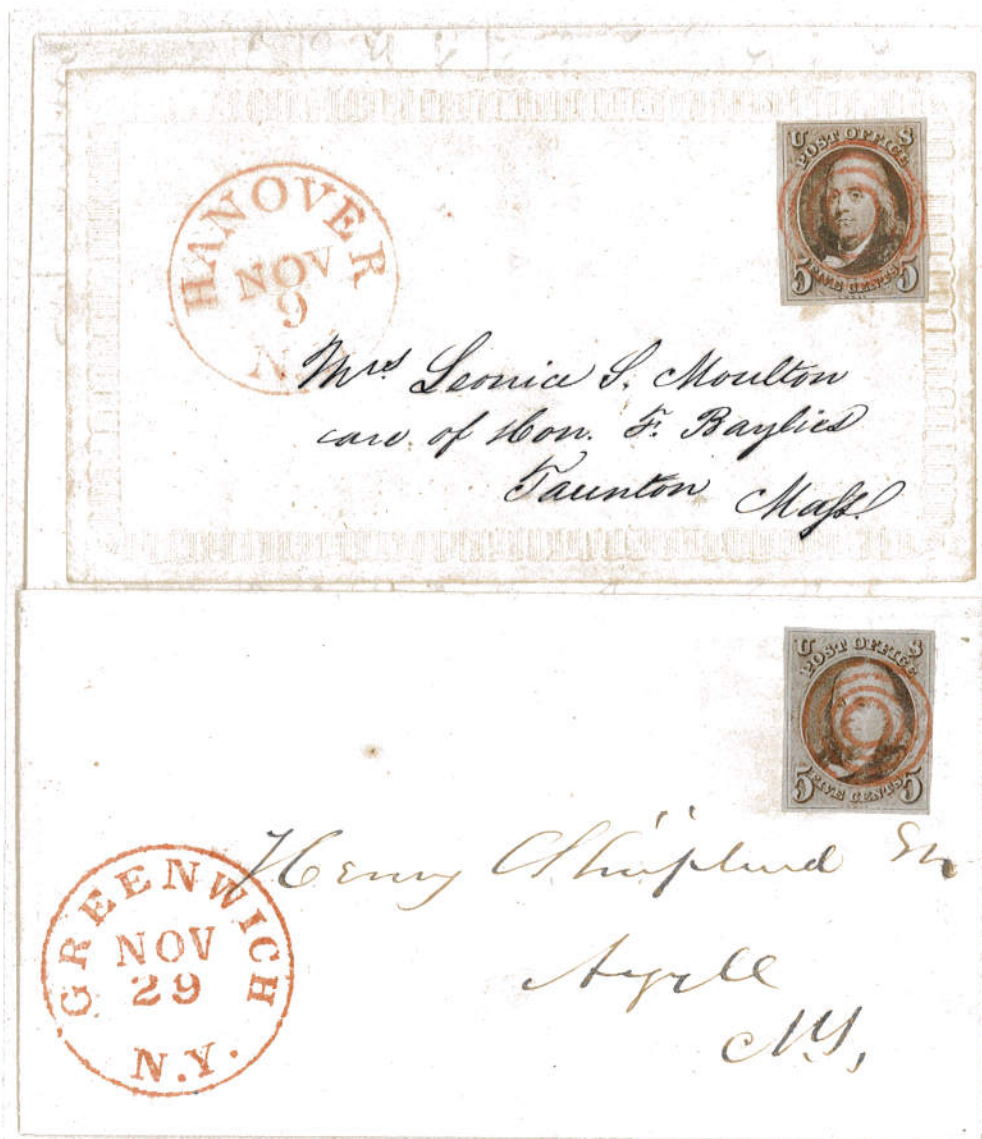 U S
POST OFFICE
5 FIVE CENTS 5
HANOVER
NOV
9
N.
Mrs Leonice S. Moulton
care of Hon. F. Baylies
Taunton Mass.
U S
POST OFFICE
5 FIVE CENTS 5
Henry Shipherd
Argyle
N.Y,
GREENWICH
NOV
29
N.Y.